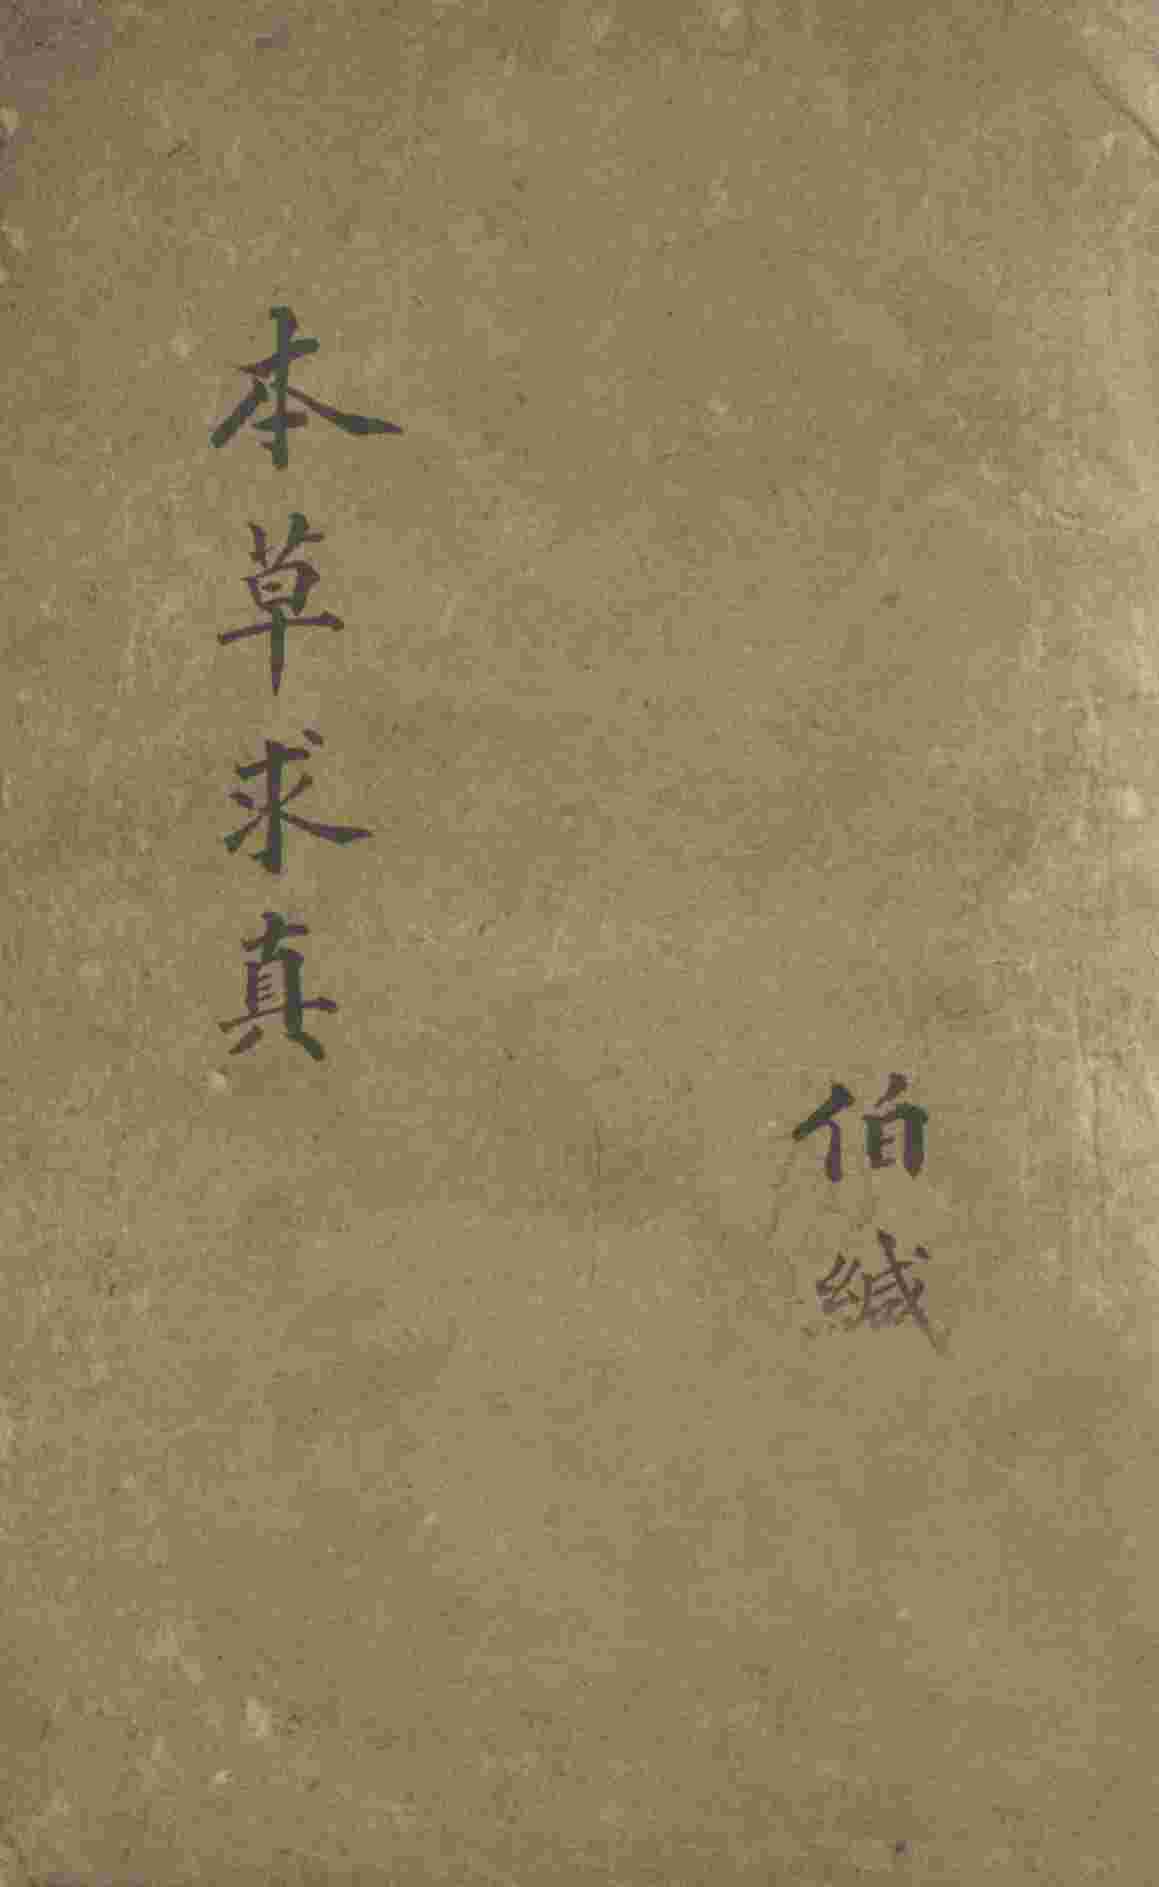 伯緘
本草求真